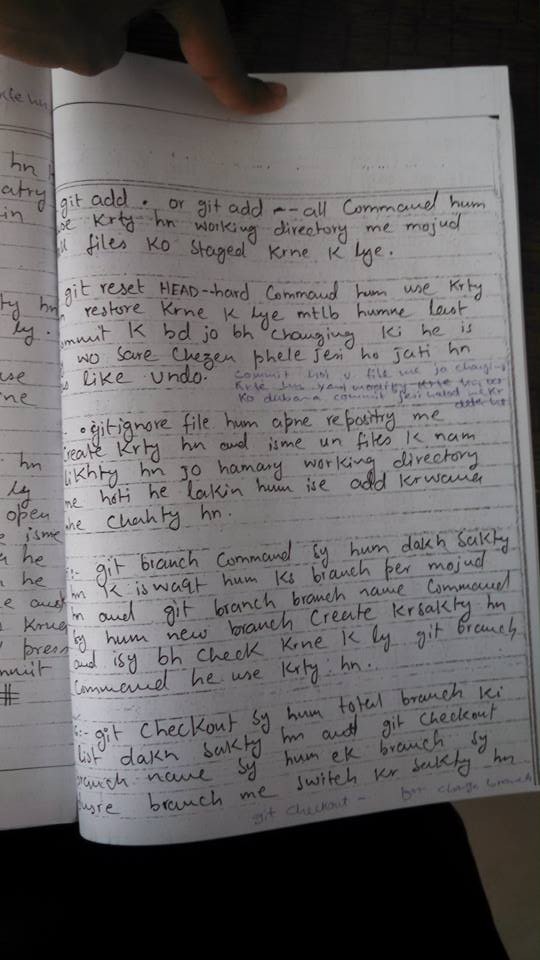 kte hn
hn
atry
in
ty hn
ly.
use
ine
hn
ly
open
isme
he
he
e and
Krne
press
mmit
#
git add . or git add --all Command hum
use Krty hn working directory me mojud
all files Ko Staged Krne K lye.
git reset HEAD--hard Command hum use Krty
hn restore Krne K lye mtlb humne last
commit K bd jo bh Changing Ki he is
sy wo sare Chezen phele jesi ho jati hn
is like undo.
Commit file me jo changing
Krte hn
Ko dubara commit
.gitignore file hum apne repositry me
Create Krty hn and isme un files K nam
likhty hn jo hamary working directory
me hoti he lakin hum ise add krwana
nhe Chahty hn.
:- git branch Command sy hum dakh sakty
hn K is waqt hum ks branch per mojud
hn and git branch branch name Command
sy hum new branch Create Krsakty hn
and isy bh Check Krne K ly git branch
Command he use Krty hn.
:- git Checkout sy hum total branch Ki
list dakh sakty hn and git Checkout
branch name sy hum ek branch sy
dusre branch me switch Kr sakty hn
git Checkout - for change branch